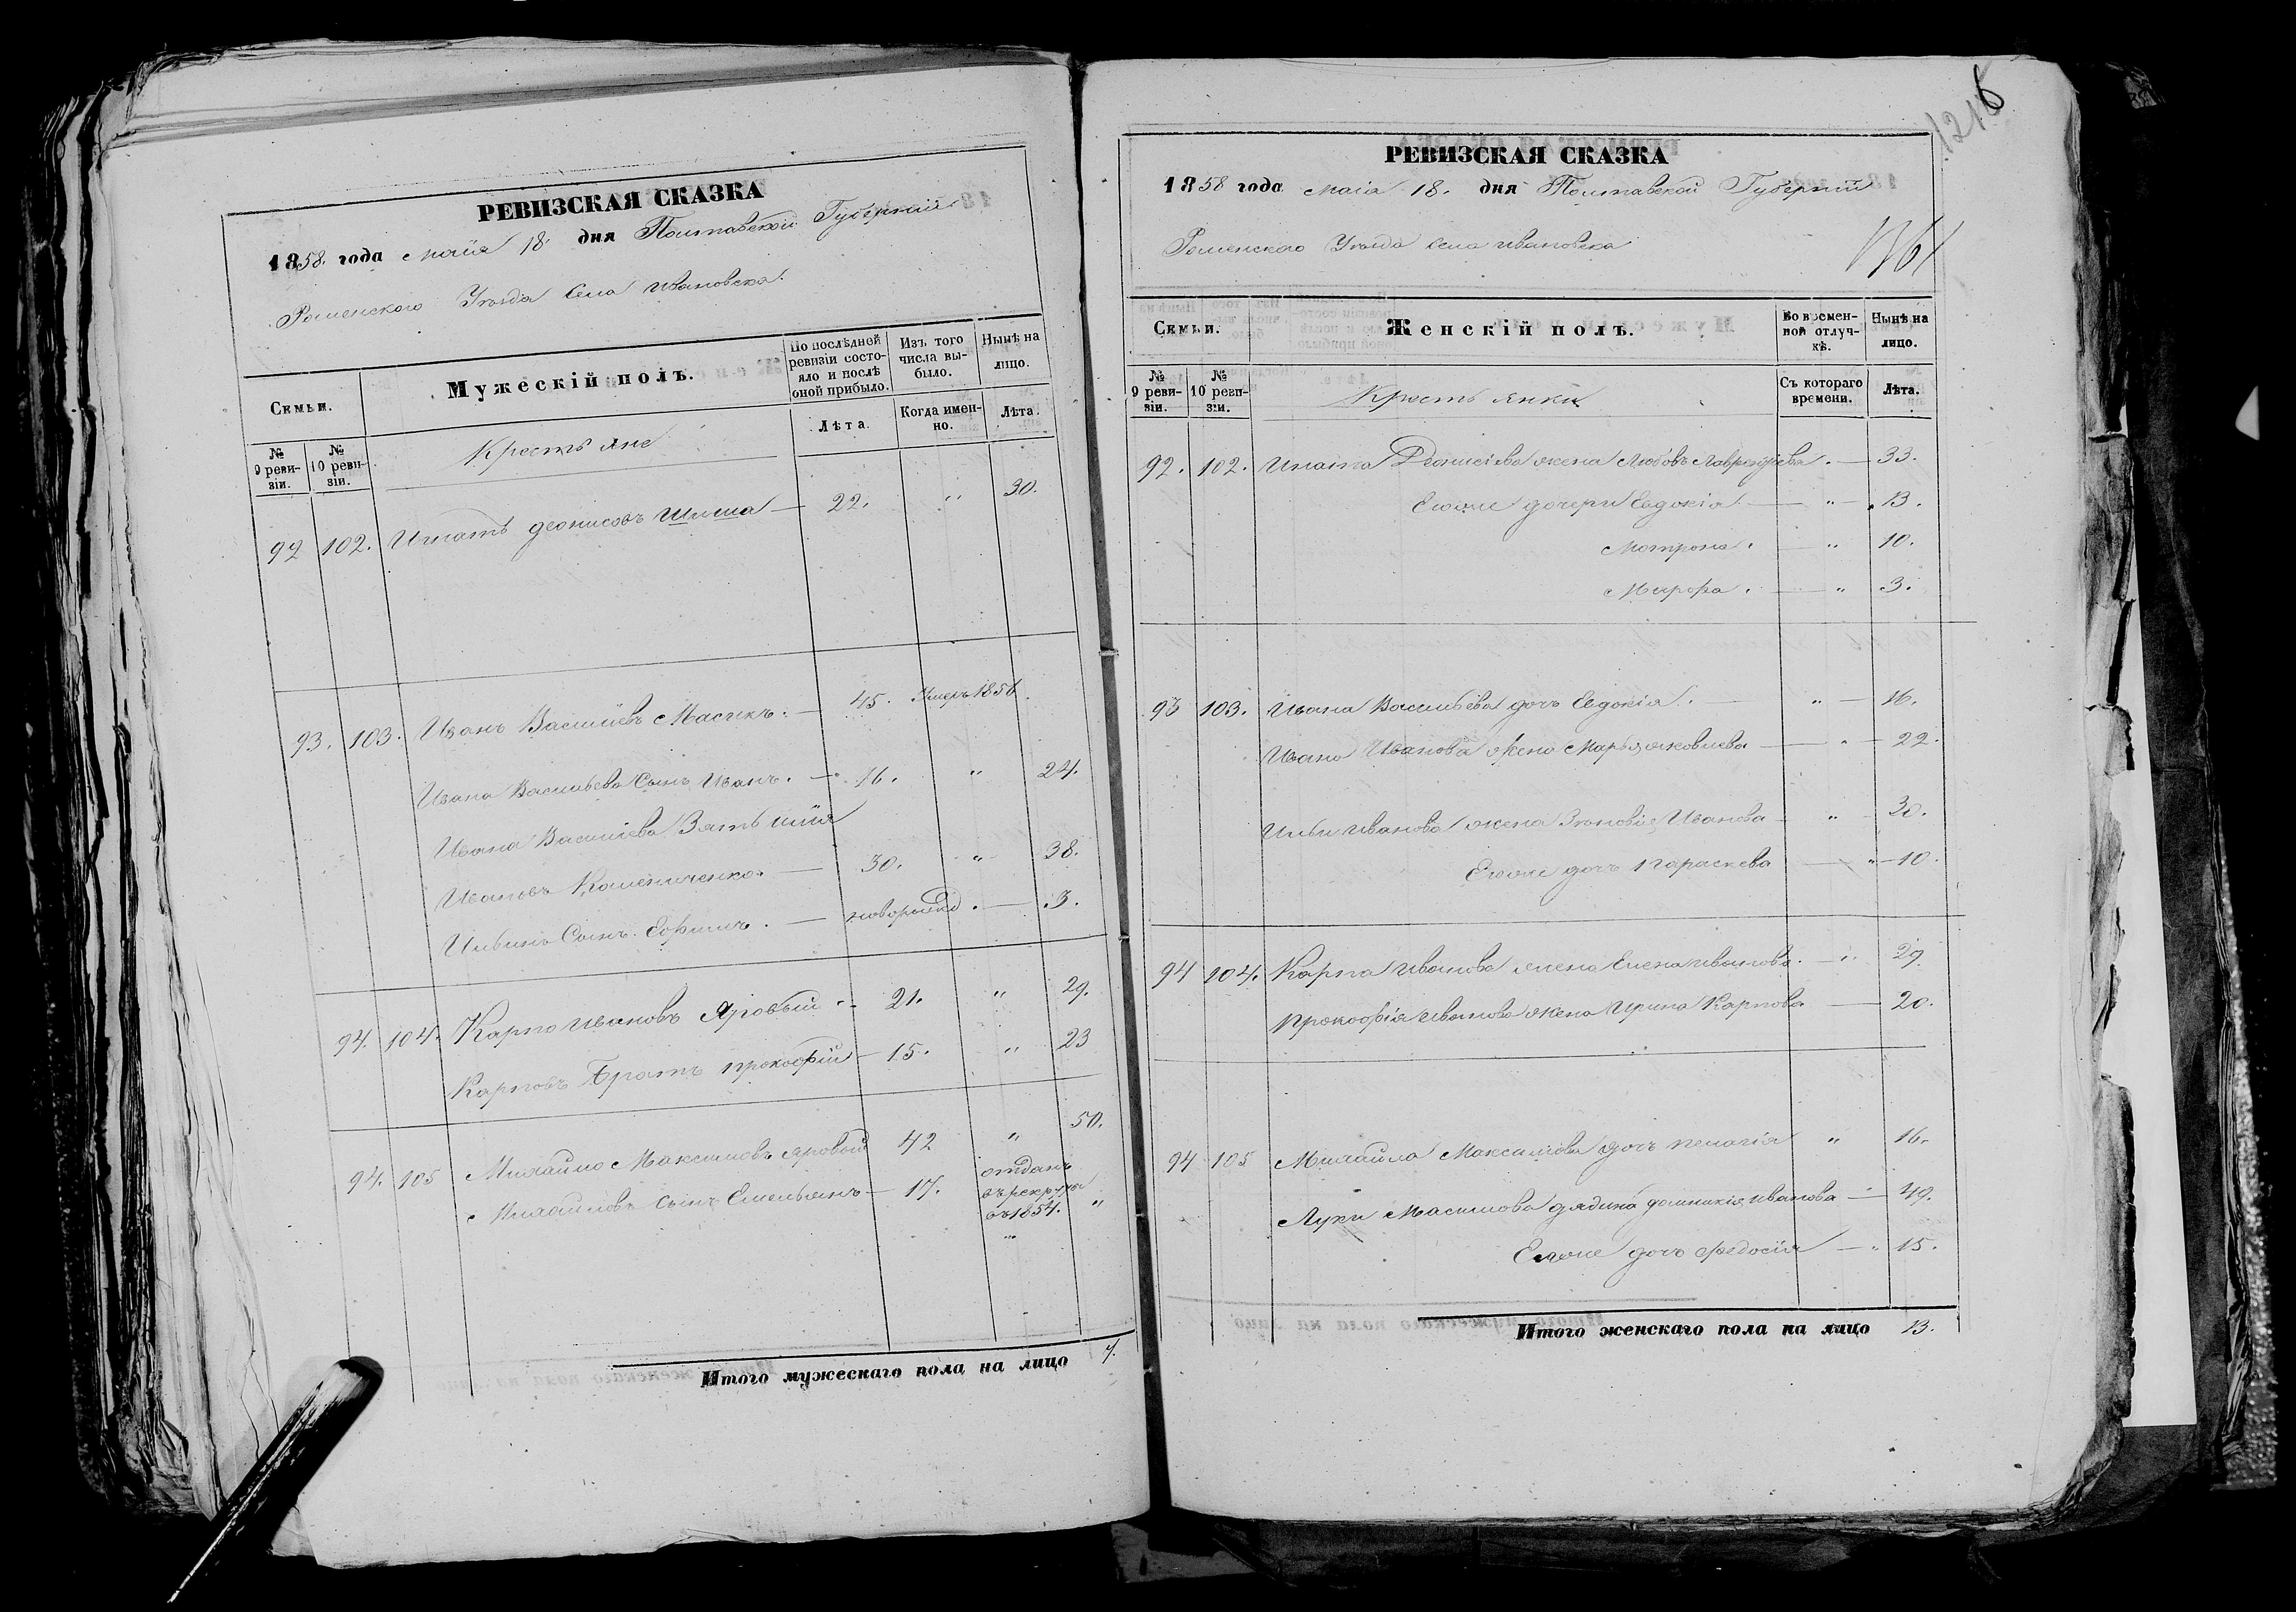 РЕВИЗСКАЯ СКАЗКА
1858 года маія 18 дня Полтавской Губерніи
Роменского Уѣзда Села Ивановска
Семьи.
Мужескій полъ.
По послѣдней ревизіи состояло и послѣ оной прибыло.
Изъ того числа выбыло.
Нынѣ на лицо.
№ 9 ревизіи.
№ 10 ревизіи.
Крестьяне
Лѣта.
Когда именно.
Лѣта.
92 102. Игнатъ Деонисовъ Шиша — 22. " 30.
93. 103. Иванъ Василіевъ Масикъ. — 45. Умеръ 1856.
Ивана Васильева Сынъ Иванъ. — 16. " 24.
Ивана Василіева Зять Илія
Ивановъ Каменченко. — 30. " 38.
Ильинъ Сынъ Ефимъ. — новорожд. — 3.
94. 104. Карпо Ивановъ Яровый — 21. " 29.
Карповъ Братъ Прокофій — 15. " 23
94. 105 Михайло Максимовъ Яровый 42 " 50.
Михайловъ Сынъ Емельянъ — 17. отданъ въ рекруты въ 1854. "
Итого мужескаго пола на лицо 7.
1216
РЕВИЗСКАЯ СКАЗКА
1858 года маія 18. дня Полтавской Губерніи
Роменского Уѣзда села Ивановска
Семьи.
Женскій полъ.
Во временной отлучкѣ.
Нынѣ на лицо.
№ 9 ревизіи.
№ 10 ревизіи.
Крестьянки
Съ котораго времени.
Лѣта.
92. 102. Игната Деонисіева жена Любовь Лаврентіева. — 33.
Егоже дочери Евдокія — " — 13.
Мотрона. — " 10.
Марфа. — " 3.
93 103. Ивана Васильева дочь Евдокія. — " — 16.
Ивана Иванова жена Марья Яковлева — " — 22.
Ильи Иванова жена Зѣновія Иванова — " 30.
Егоже дочь Параскева — " — 10.
94 104. Карпа Иванова жена Елена Иванова. — " 29.
Прокофія Иванова жена Ирина Карпова — 20.
94 105 Михайла Максимова дочь Пелагія " 16.
Луки Максимова дядина Домникія Иванова — 49.
Егоже дочь Федосія — " 15.
Итого женскаго пола на лицо 13.